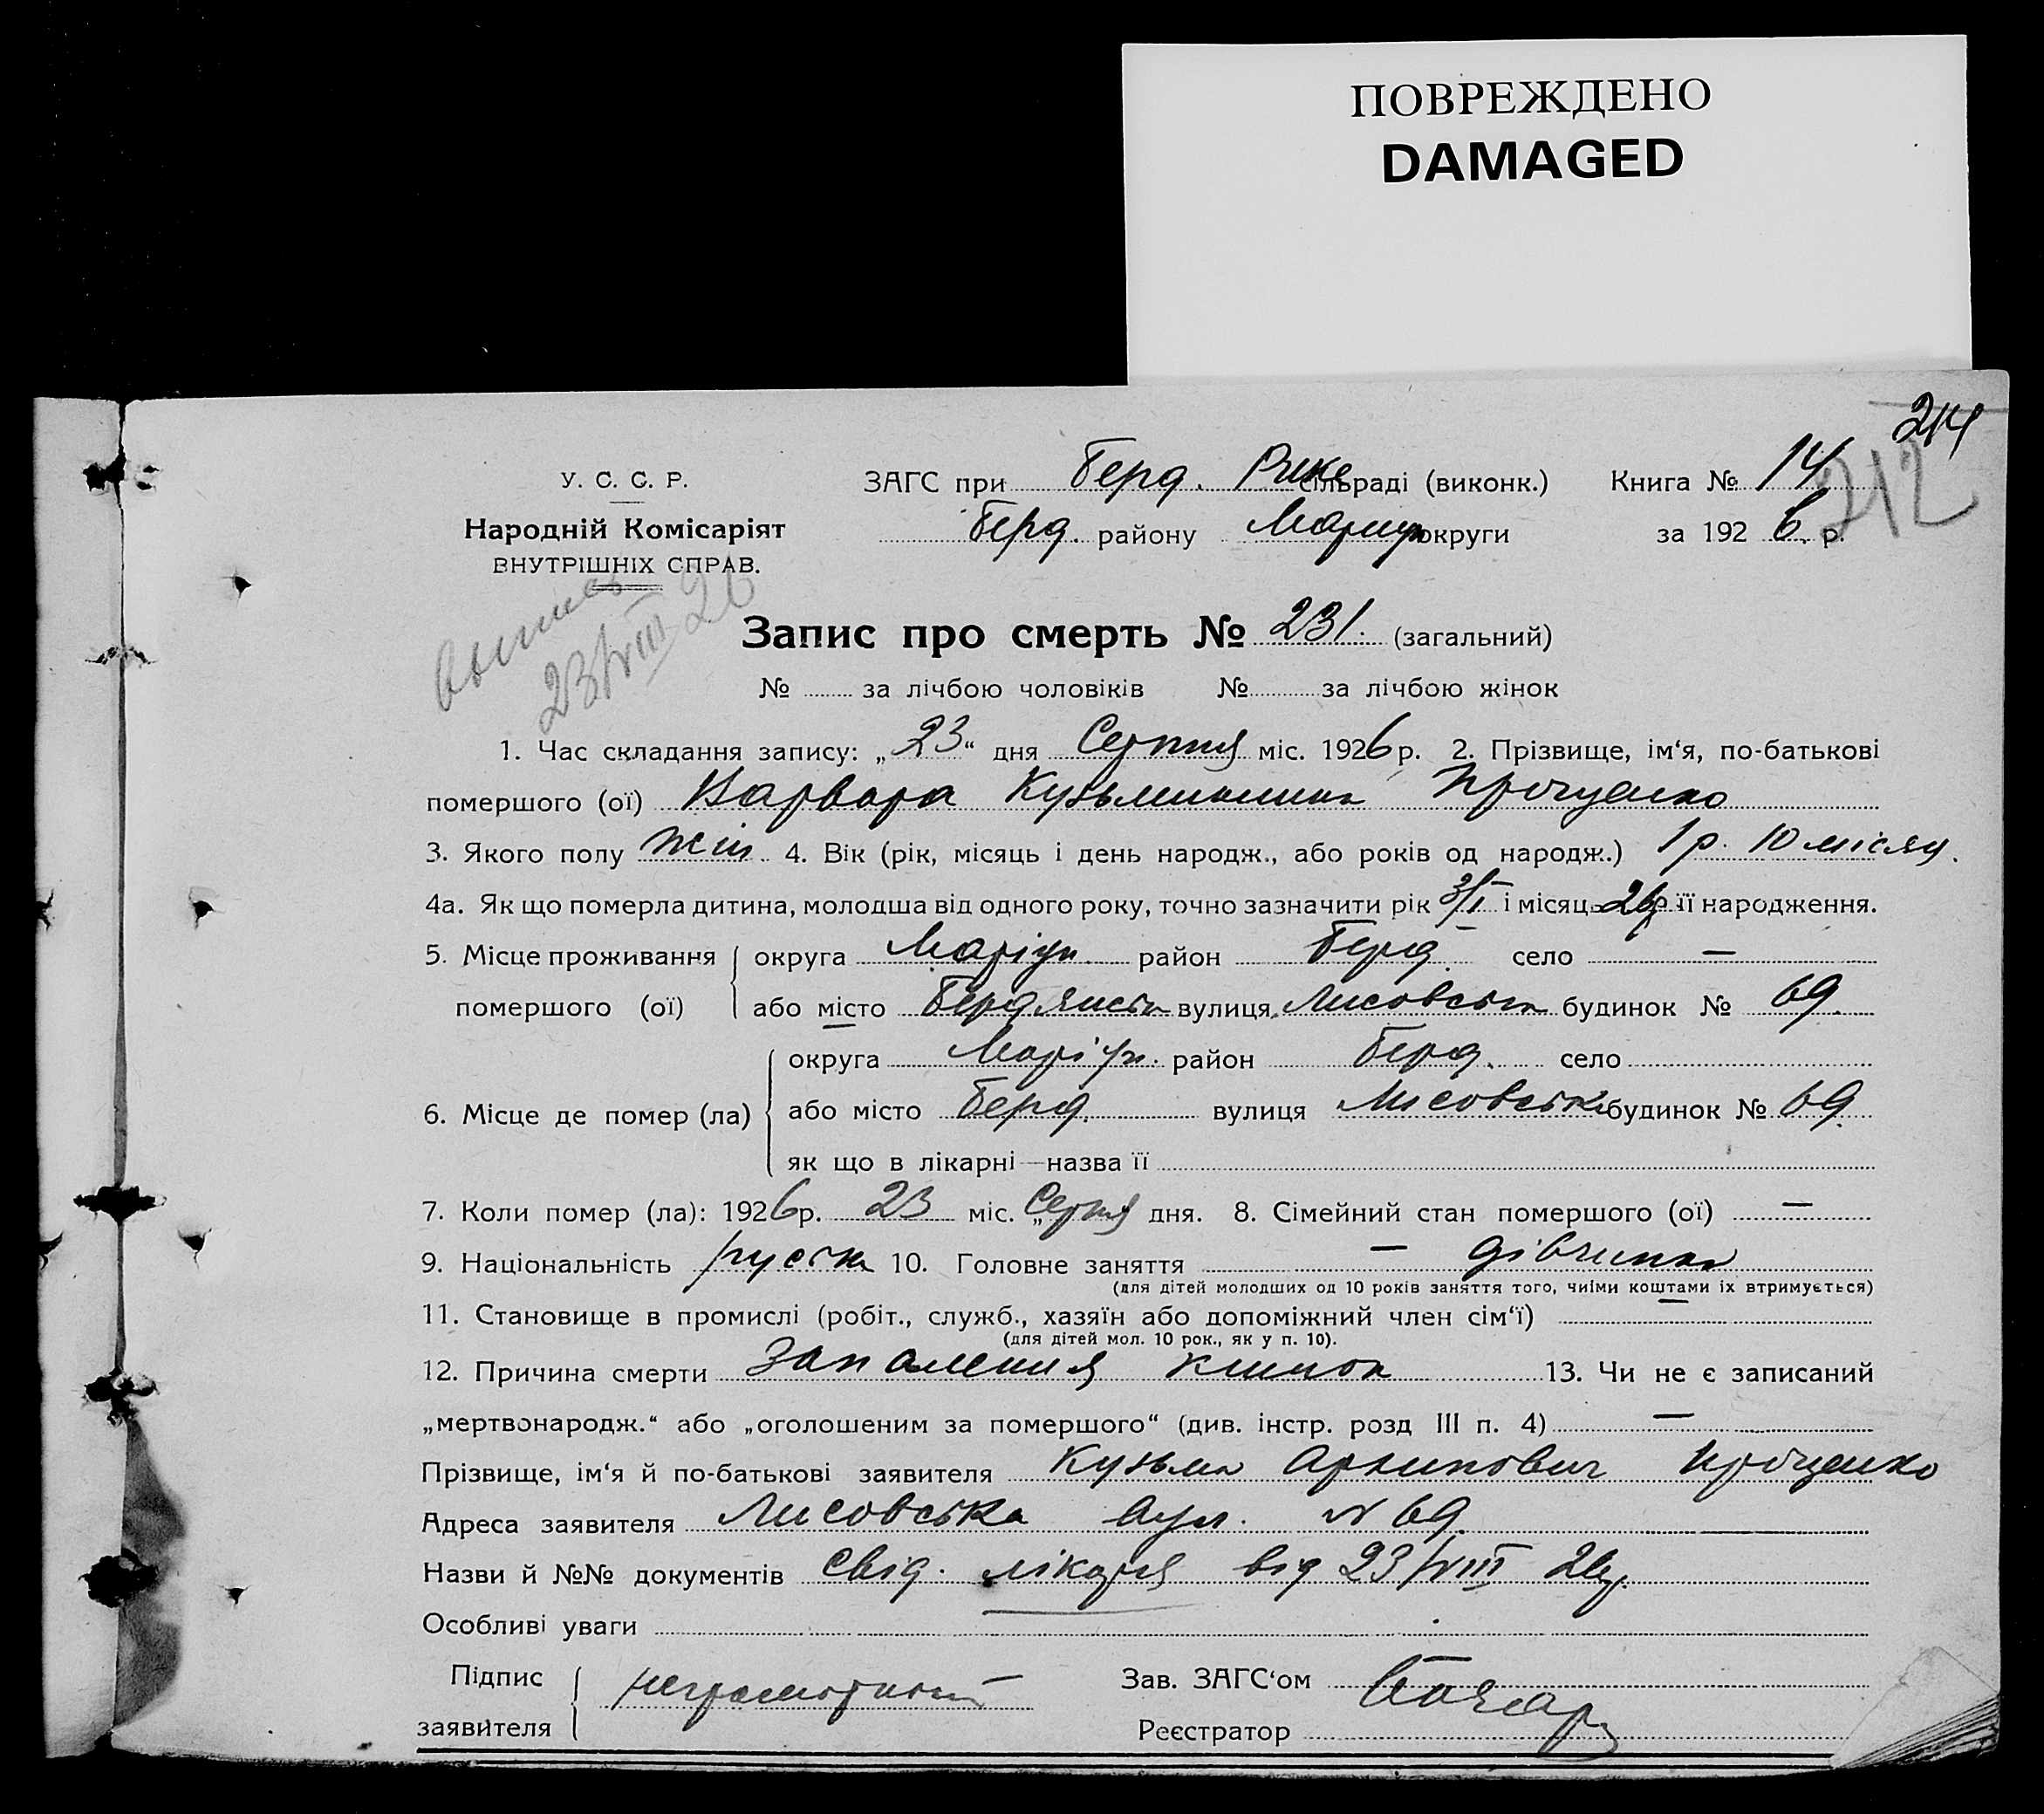 ПОВРЕЖДЕНО
DAMAGED
214
212
У. С. С. Р.
Народній Комісаріят
ВНУТРІШНІХ СПРАВ.
ЗАГС при Берд. Рике сільраді (виконк.) Книга № 14
Берд. району Мариуп округи за 1926 р.
23/VIII 26
Запис про смерть № 231. (загальний)
№ за лічбою чоловіків № за лічбою жінок
1. Час складання запису: „23“ дня Серпня міс. 1926 р. 2. Прізвище, ім‘я, по-батькові
помершого (ої) Варвара Кузьминишна Проценко
3. Якого полу жін. 4. Вік (рік, місяць і день народж., або років од народж.) 1 р. 10 місяц.
4а. Як що померла дитина, молодша від одного року, точно зазначити рік і місяць її народження.
5. Місце проживання округа Маріуп. район Берд. село —
помершого (ої) або місто Бердянськ вулиця Лисовська будинок № 69.
округа Маріуп. район Берд. село
6. Місце де помер (ла) або місто Берд. вулиця Лисовська будинок № 69.
як що в лікарні—назва її
7. Коли помер (ла): 1926 р. 23 міс. „Серпня дня. 8. Сімейний стан помершого (ої) —
9. Національність руська 10. Головне заняття — дівчинка
(для дітей молодших од 10 років заняття того, чиїми коштами їх втримується)
11. Становище в промислі (робіт., служб., хазяїн або допоміжний член сім‘ї) —
(для дітей мол. 10 рок., як у п. 10).
12. Причина смерти Запаления кишок 13. Чи не є записаний
„мертвонародж.“ або „оголошеним за помершого“ (див. інстр. розд III п. 4) —
Прізвище, ім‘я й по-батькові заявителя Кузьма Архипович Проценко
Адреса заявителя Лисовська вул. № 69.
Назви й №№ документів свід. лікаря від 23/VIII 26 р.
Особливі уваги
Підпис заявителя неграмотний
Зав. ЗАГС‘ом
Реєстратор